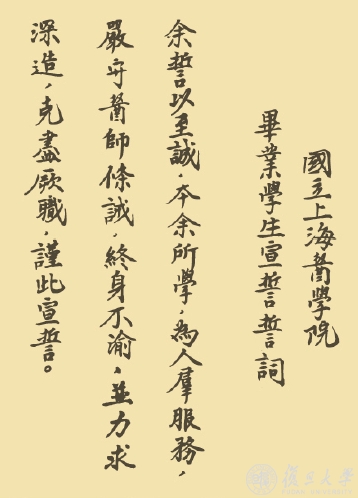 國立上海醫學院
畢業學生宣誓誓詞
余誓以至誠，本余所學，為人羣服務，
嚴守醫師條誡，終身不渝，並力求
深造，克盡厥職，謹此宣誓。
復旦大學